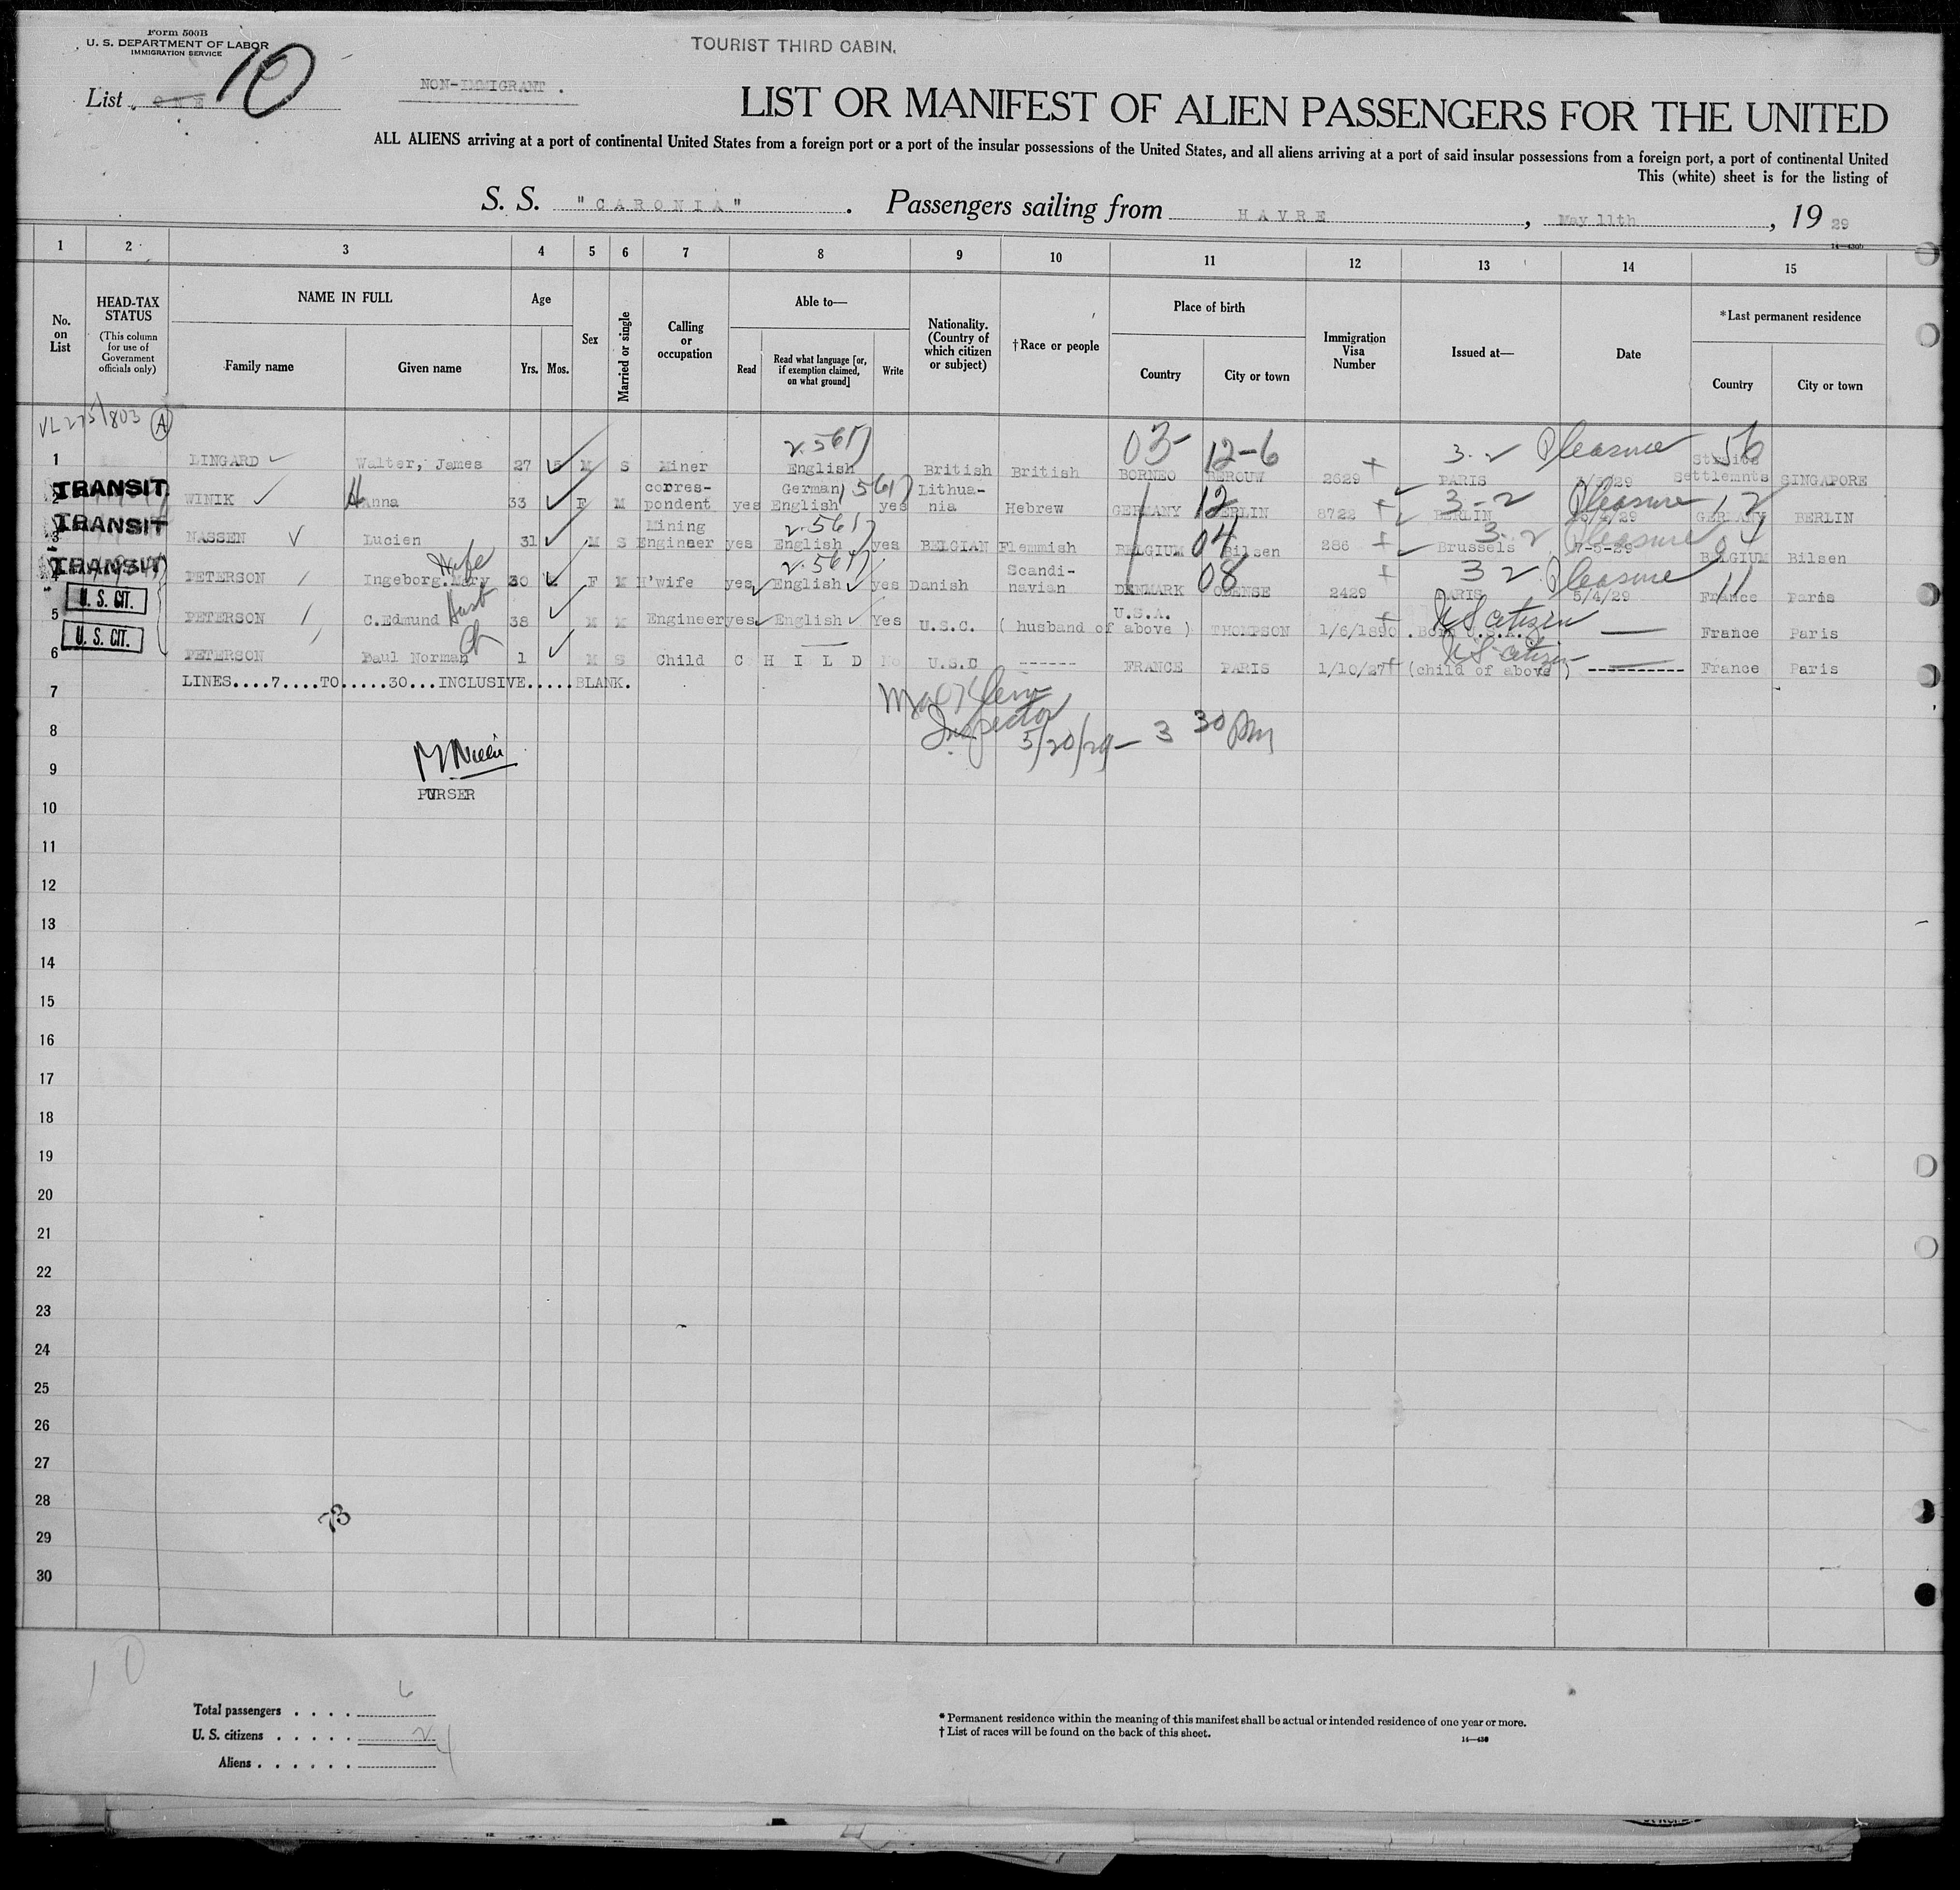 Form 500B
U. S. DEPARTMENT OF LABOR
IMMIGRATION SERVICE
TOURIST THIRD CABIN.
List ONE 10
NON-IMMIGRANT.
LIST OR MANIFEST OF ALIEN PASSENGERS FOR THE UNITED
ALL ALIENS arriving at a port of continental United States from a foreign port or a port of the insular possessions of the United States, and all aliens arriving at a port of said insular possessions from a foreign port, a port of continental United
This (white) sheet is for the listing of
S. S. "CARONIA". Passengers sailing from HAVRE, May 11th, 19 29
14-430b
1 2 3 4 5 6 7 8 9 10 11 12 13 14 15
No. on List
HEAD-TAX STATUS
(This column for use of Government officials only)
NAME IN FULL
Family name
Given name
Age
Yrs. Mos.
Sex
Married or single
Calling or occupation
Able to—
Read
Read what language [or, if exemption claimed, on what ground]
Write
Nationality. (Country of which citizen or subject)
†Race or people
Place of birth
Country
City or town
Immigration Visa Number
Issued at—
Date
*Last permanent residence
Country
City or town
VL 275/803 A
2.5617 03- 12-6 3-2 Pleasure 56
1 LINGARD Walter, James 27 M S Miner English British British BORNEO BEROUW 2629 PARIS Straits Settlemnts SINGAPORE
TRANSIT
5617 12 3-2 Pleasure 12
2 WINIK Anna 33 F M corres-pondent yes German English yes Lithua-nia Hebrew GERMANY BERLIN 8722 BERLIN GERMANY BERLIN
TRANSIT
2.5617 04 3-2 Pleasure 04
3 NASSEN Lucien 31 M S Mining Engineer yes English yes BELGIAN Flemmish BELGIUM Bilsen 286 Brussels 7-5-29 BELGIUM Bilsen
TRANSIT
Wife 2.5617 08 3 2 Pleasure 11
4 PETERSON Ingeborg.Mary 30 F M H'wife yes English yes Danish Scandi-navian DENMARK ODENSE 2429 PARIS 5/4/29 France Paris
U. S. CIT.
Hust US citizen
5 PETERSON C.Edmund 38 M M Engineer yes English Yes U.S.C. ( husband of above ) U.S.A. THOMPSON 1/6/1890 Born U.S.A. France Paris
U. S. CIT.
Ch US citizen
6 PETERSON Paul Norman 1 M S Child C H I L D No U.S.C ------ FRANCE PARIS 1/10/27 (child of above) ---------- France Paris
7 LINES....7....TO.....30...INCLUSIVE.....BLANK.
Inspector
8 5/20/29 - 3 30 pm
9
PURSER
10
11
12
13
14
15
16
17
18
19
20
21
22
23
24
25
26
27
28
73
29
30
10
Total passengers . . . . 6
U. S. citizens . . . . . 2
Aliens . . . . . . 4
* Permanent residence within the meaning of this manifest shall be actual or intended residence of one year or more.
† List of races will be found on the back of this sheet.
14-430